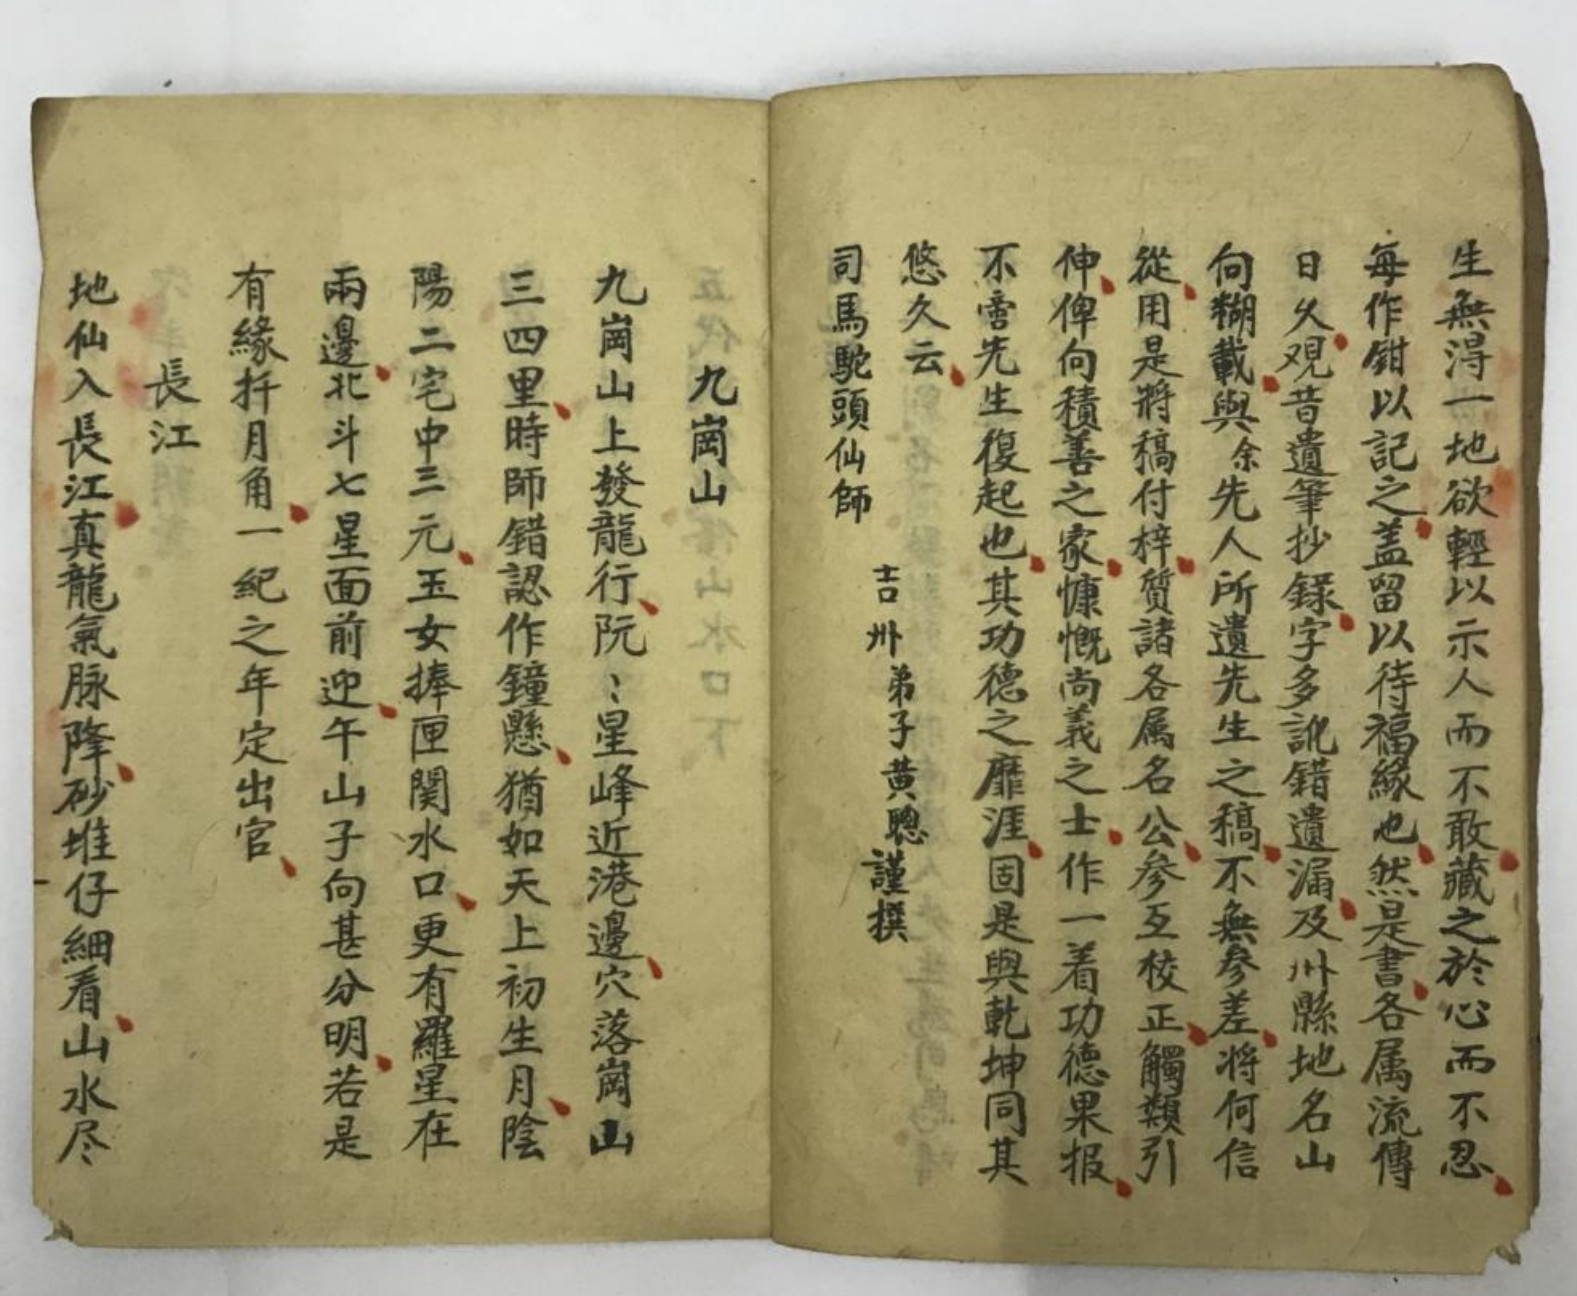 生無淂一地欲輕以示人而不敢藏之於心而不忍
每作鉗以記之盖留以待福緣也然是書各属流傳
日久观昔遺筆抄録字多訛錯遺漏及州縣地名山
向糊載與余先人所遺先生之稿不無参差将何信
從用是將稿付梓質諸各属名公参互校正觸類引
伸俾向積善之家慷慨尚義之士作一着功德果报
不啻先生復起也其功德之靡涯固是與乾坤同其
悠久云
司馬駝頭仙師
吉州弟子黄聰謹撰
九崗山
九崗山上發龍行阮〻星峰近港邊穴落崗山
三四里時師錯認作鐘懸猶如天上初生月陰
陽二宅中三元玉女捧匣関水口更有羅星在
兩邊北斗七星面前迎午山子向甚分明若是
有緣扦月角一紀之年定出官
長江
地仙入長江真龍氣脉降砂堆仔細看山水尽